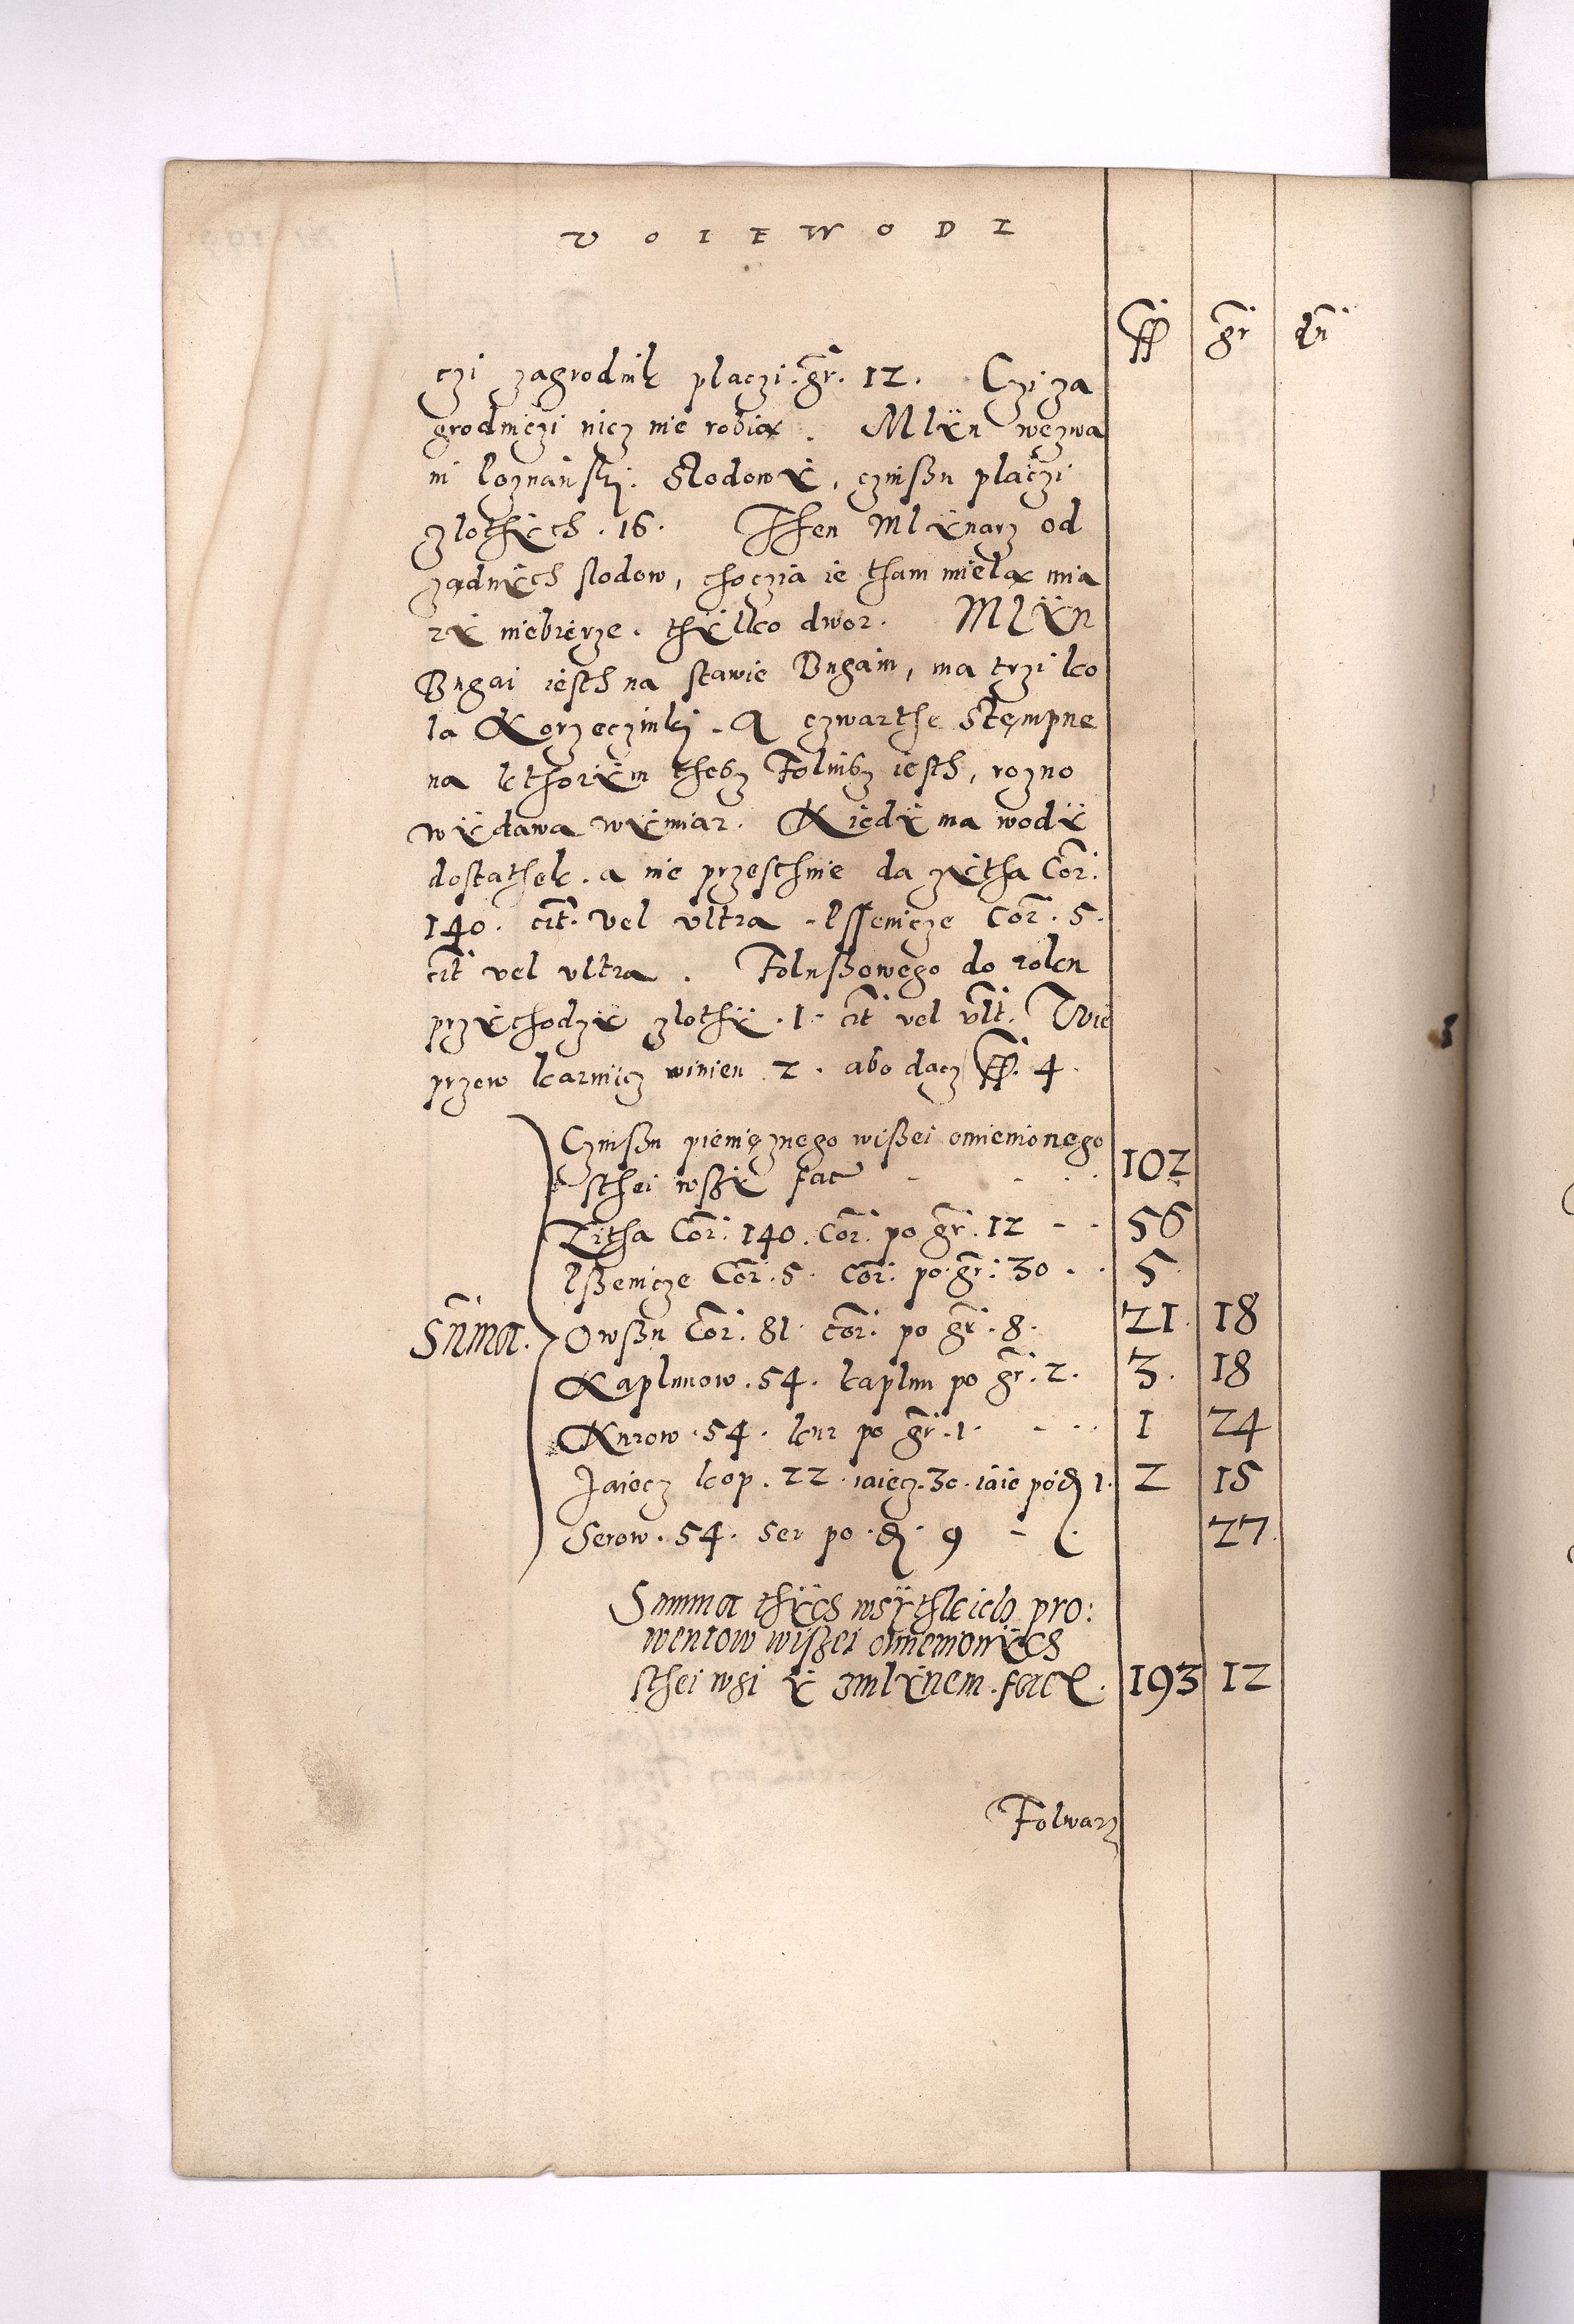 VOIEWODZ
fl. gr. dn.
czi zagrodnik placzi. gr. 12. Czi za
grodniczi nicz nie robią. Mlÿn wezwa
ni Poznański. Slodowÿ, czinßu placzi
zlothÿch. 16. Then Mlÿnarz od
żądnÿch slodow, choczia ie tham mielą mia
rÿ niebierze. thÿlko dwor. Mlÿn
Bugai iesth na stawie Bugaiu, ma trzi ko
la Korzeczinki. A czwarthe Stępmpne
na kthorÿm theß Folußz iesth, rozno
wÿdawa wÿmiar. Kiedÿ ma wodÿ
dostathek. a nie przesthnie da zÿtha Cor.
140. cit. vel vltra. Psseniczę Cor. 5.
cit vel vltra. Folußowego do roku
przÿchodzÿ zlothÿ. 1. cit vel vlt. Wie
przow karmicz winien 2. abo dacz fl. 4.
Czinßu pieniężnego wißei omienionego
sthei wßÿ fac̃ 102
Zitha Cor. 140. Cor. po gr. 12 56
Pßenicze Cor. 5. Cor. po gr. 30 5
Suma. Owßu Cor. 81. cor. po gr. 8. 21. 18
Kaplunow. 54. kaplun po gr. 2. 3. 18
Kurow. 54. kur po gr. 1. 1 24
Jaiecz kop. 22. iaiecz. 30. iaie po δ 1. 2 15
Serow. 54. Ser po. δ. 9 27.
Summa thÿch wsÿthkich pro:
wentow wißei omienionÿch
sthei wsi ÿ zmlÿnem. facit. 193 12
Folwarz